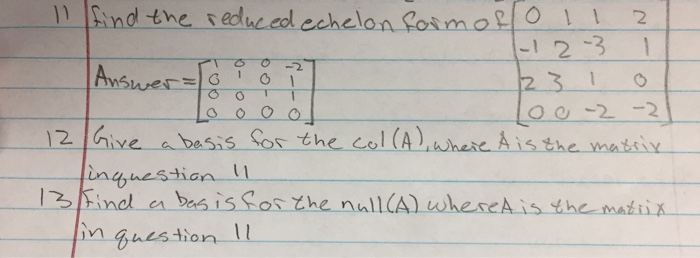 11 find the reduced echelon form of [0 1 1 2
-1 2 -3 1
Answer = [1 0 0 -2
0 1 0 1
0 0 1 1
0 0 0 0]
2 3 1 0
0 0 -2 -2]
12 Give a basis for the col(A), where A is the matrix
in question 11
13 Find a basis for the null(A) where A is the matrix
in question 11